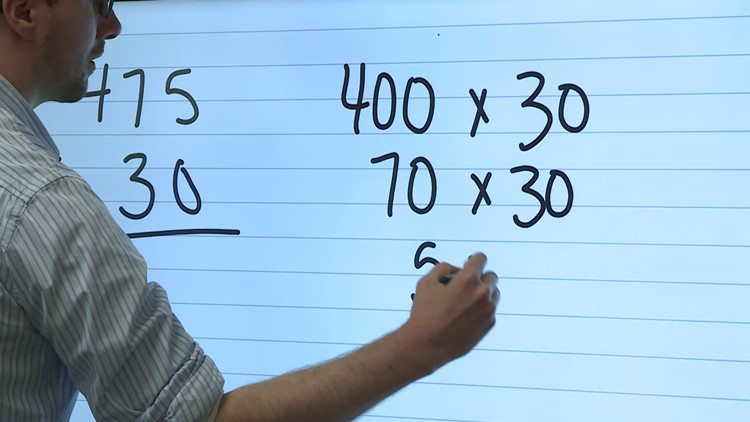 475
30
400 x 30
70 x 30
5